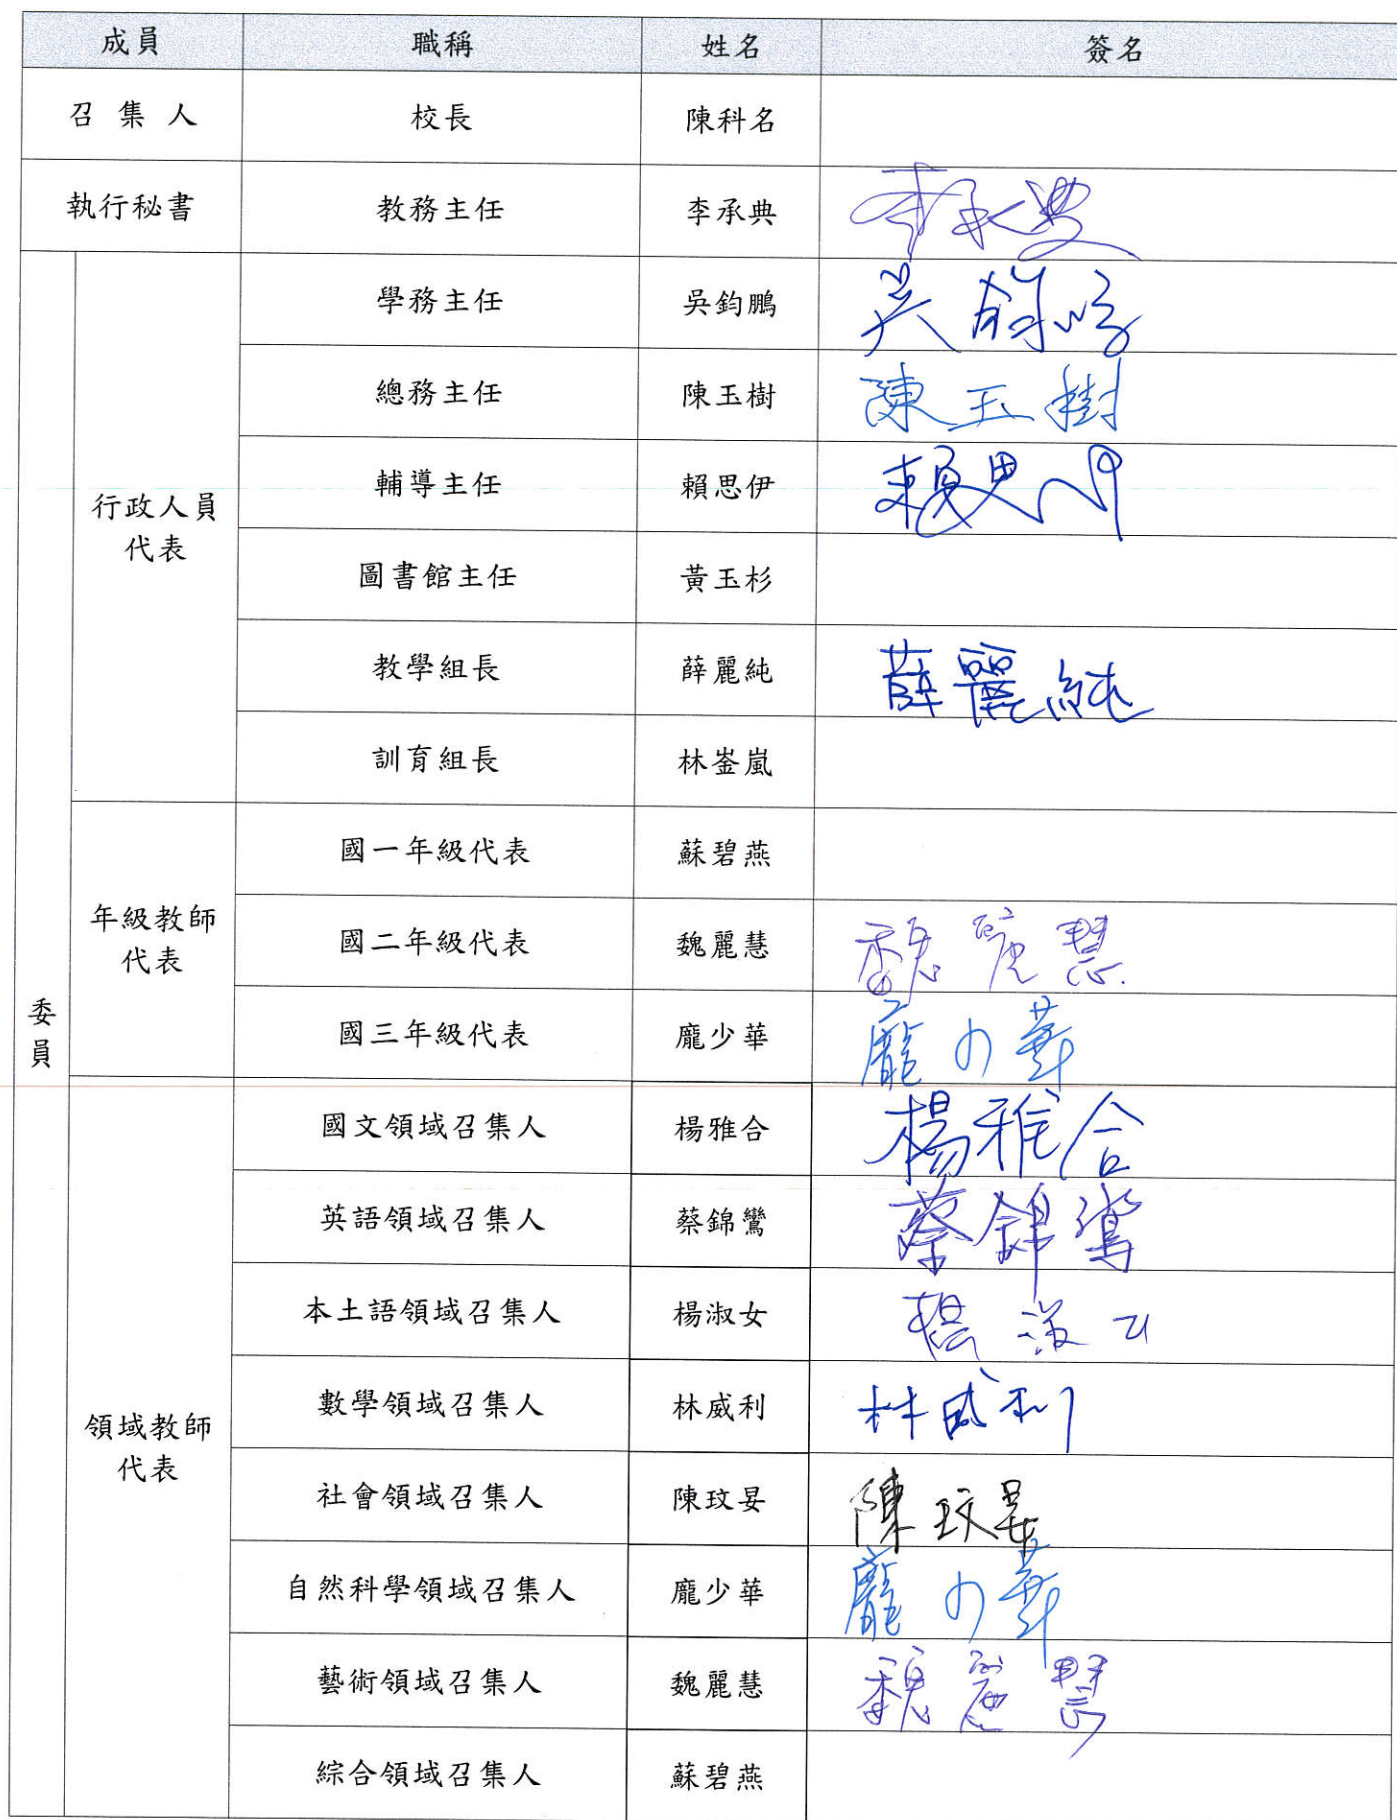 成員 職稱 姓名 簽名
召集人 校長 陳科名
執行秘書 教務主任 李承典 李承典
委員
行政人員
代表
學務主任 吳鈞鵬 吳鈞鵬
總務主任 陳玉樹 陳玉樹
輔導主任 賴思伊 賴思伊
圖書館主任 黃玉杉
教學組長 薛麗純 薛麗純
訓育組長 林崟嵐
年級教師
代表
國一年級代表 蘇碧燕
國二年級代表 魏麗慧 魏麗慧
國三年級代表 龐少華 龐少華
領域教師
代表
國文領域召集人 楊雅合 楊雅合
英語領域召集人 蔡錦鸞 蔡錦鸞
本土語領域召集人 楊淑女 楊淑女
數學領域召集人 林威利 林威利
社會領域召集人 陳玟妟 陳玟妟
自然科學領域召集人 龐少華 龐少華
藝術領域召集人 魏麗慧 魏麗慧
綜合領域召集人 蘇碧燕